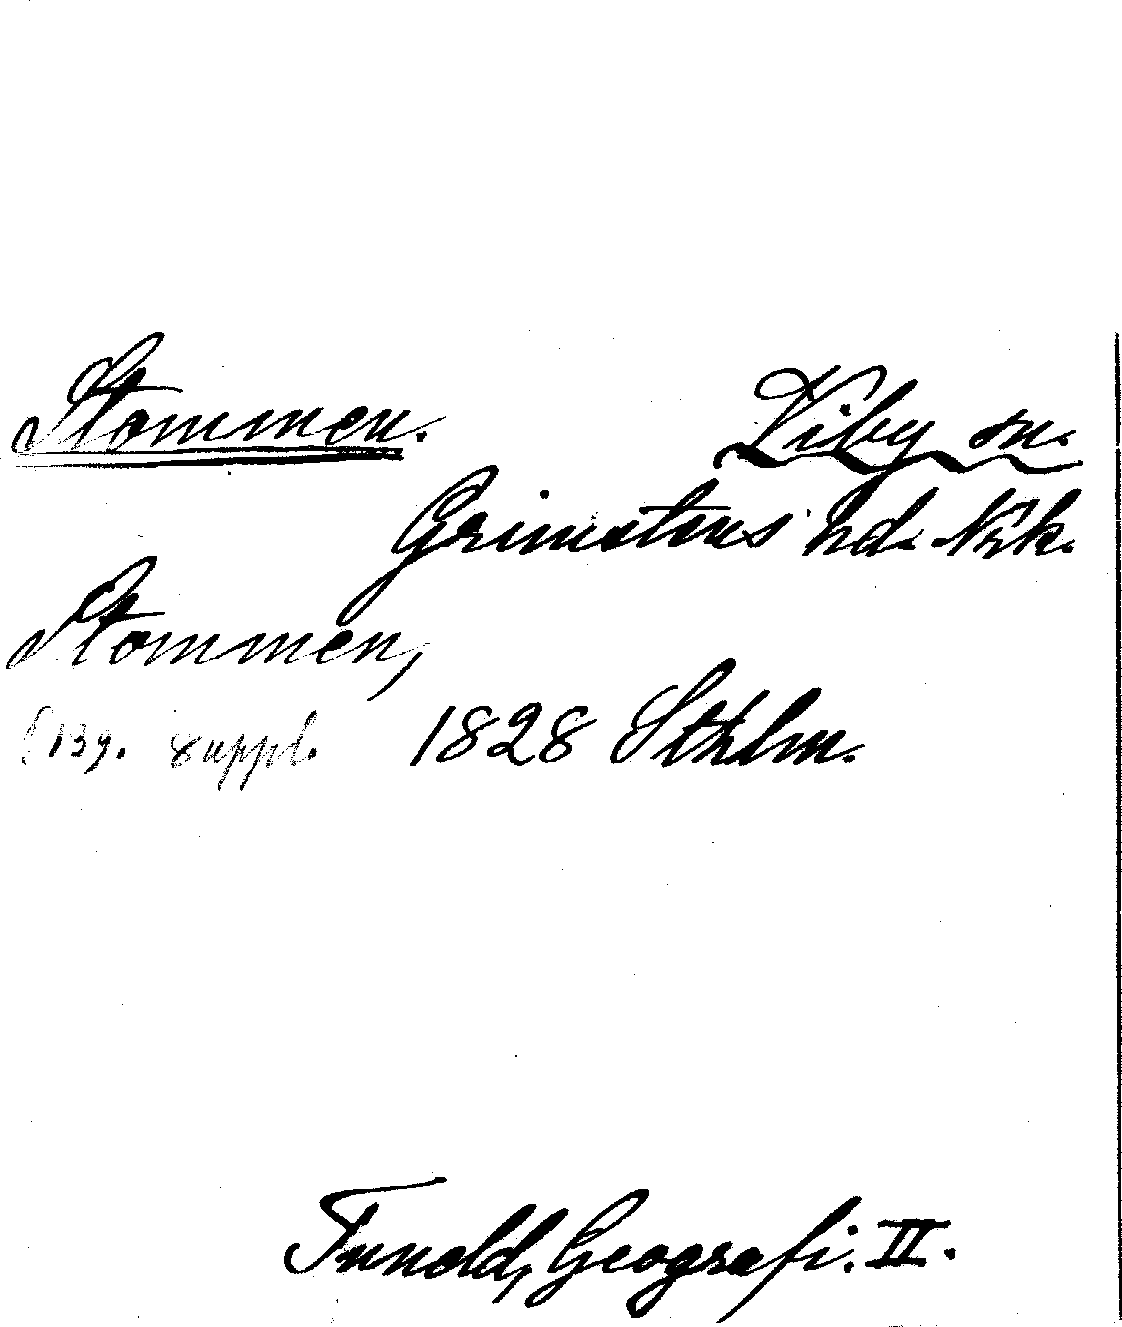 Stommen. Viby sn.
Grimstens hd. Nrk.
Stommen,
(Bg. suppl. 1828 Sthlm.
Tunold, Geografi. II.